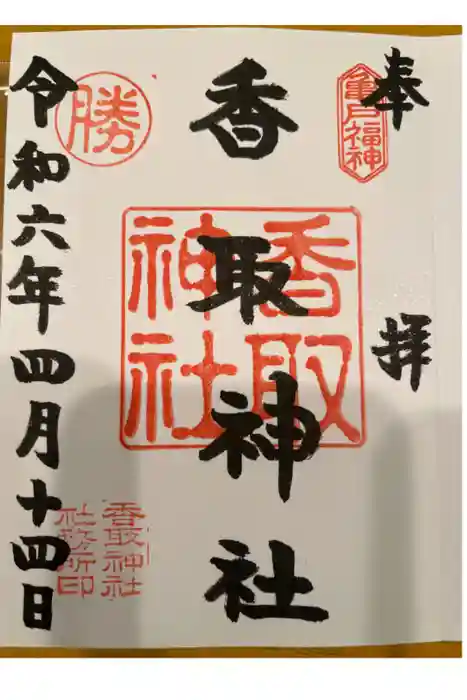 奉拝
亀戸福神
香取神社
香取神社
勝
香取神社
社務所印
令和六年四月十四日